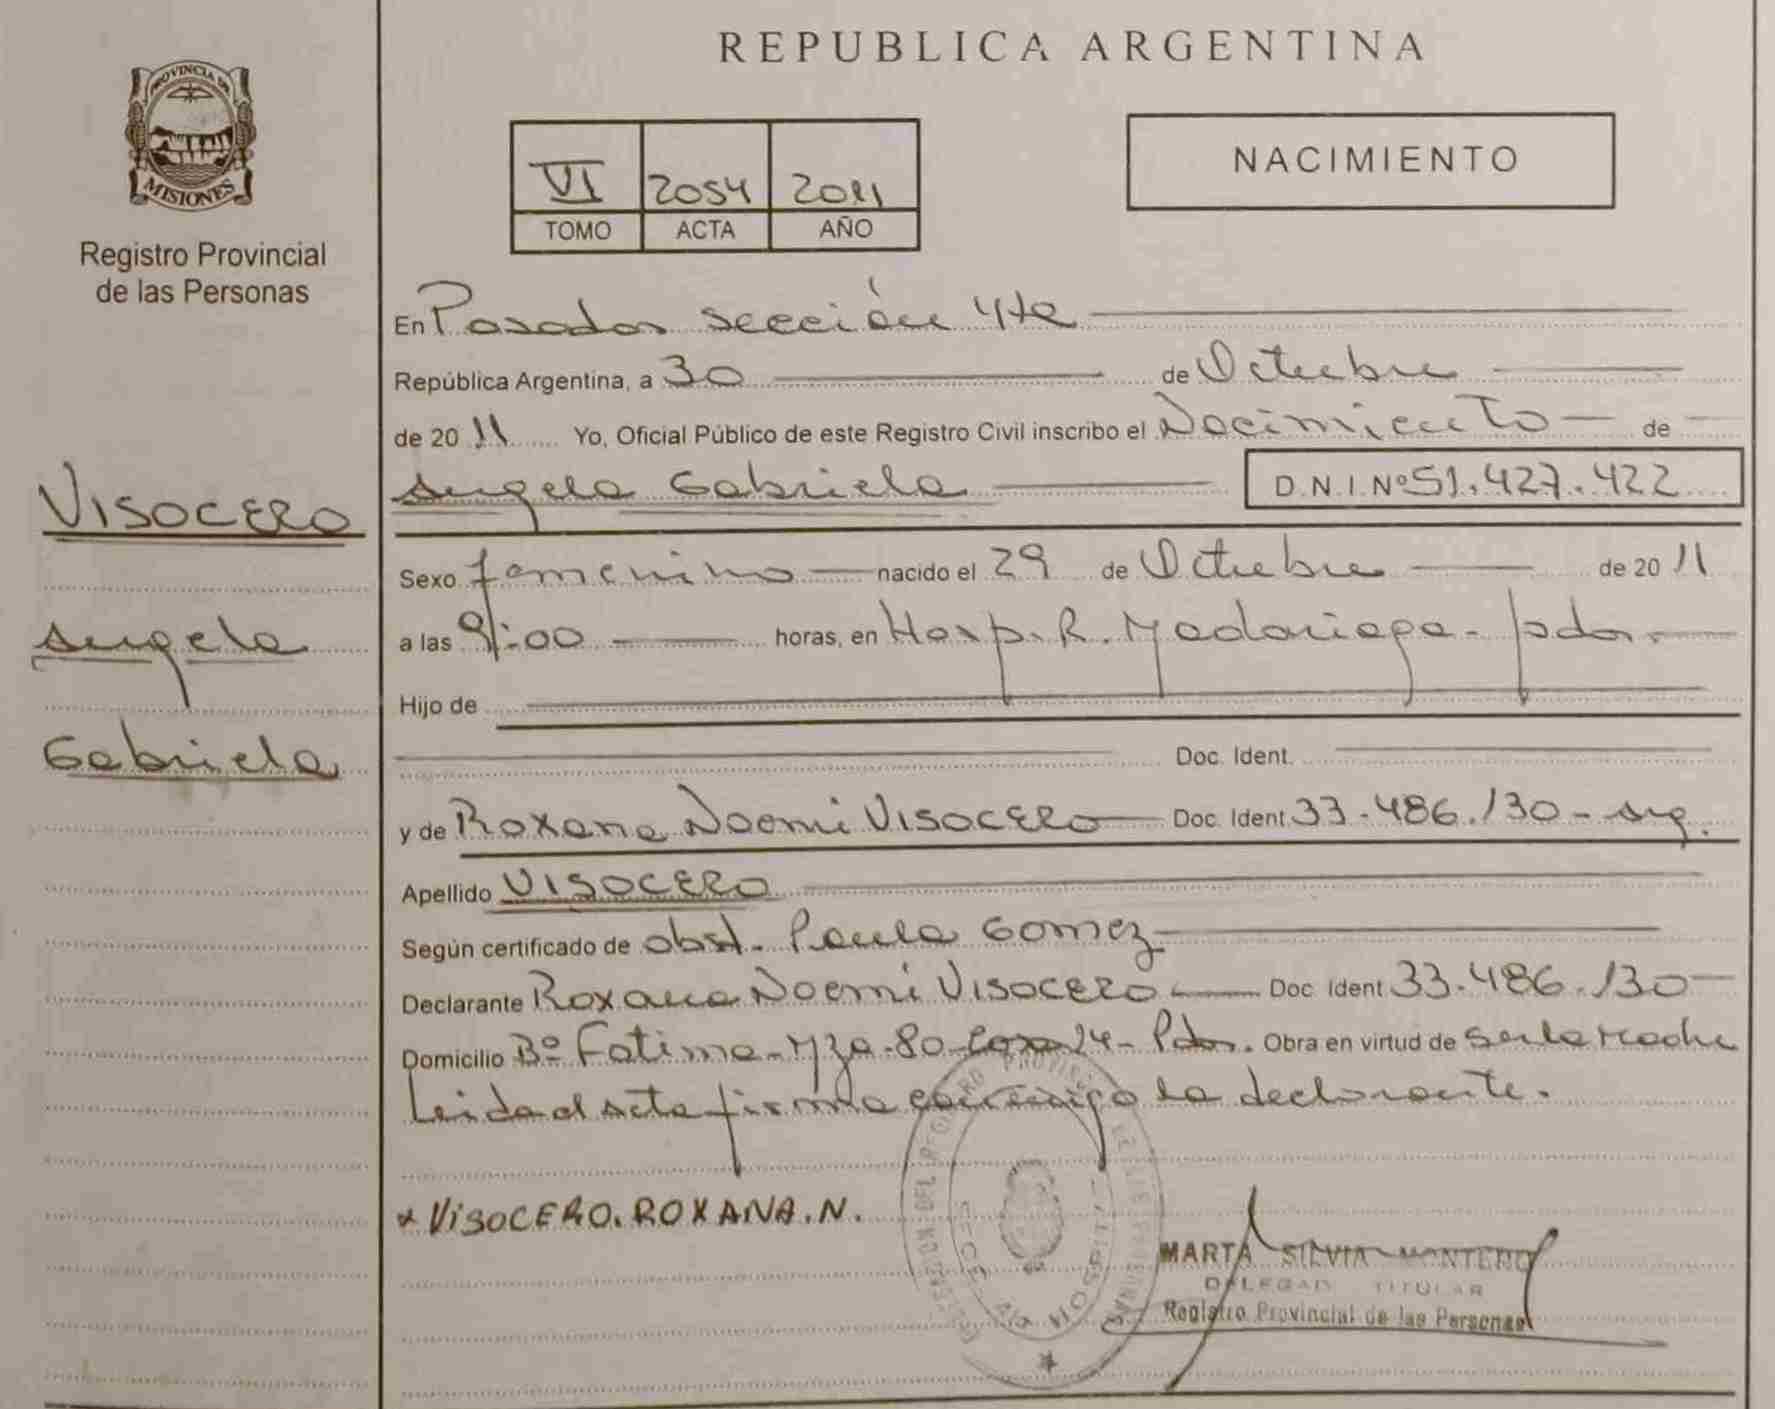 PROVINCIA DE
MISIONES
Registro Provincial
de las Personas
VISOCERO
Angela
Gabriela
REPUBLICA ARGENTINA
VI 2054 2011
TOMO ACTA AÑO
NACIMIENTO
En Posadas sección 4ta
República Argentina, a 30 de Octubre
de 20 11 Yo, Oficial Público de este Registro Civil inscribo el Nacimiento de
Angela Gabriela D.N.I. Nº 51.427.422
Sexo femenino nacido el 29 de Octubre de 20 11
a las 9:00 horas, en Hosp. R. Madariaga - Pdas.
Hijo de
Doc. Ident.
y de Roxana Noemi VISOCERO Doc. Ident 33.486.130 - arg.
Apellido VISOCERO
Según certificado de obst. Paula Gomez
Declarante Roxana Noemi VISOCERO Doc Ident 33.486.130
Domicilio Bº Fatima - Mza. 80 - Casa 24 - Pdas. Obra en virtud de ser la madre
Leida el acta firma conmigo la declarante.
x VISOCERO. ROXANA. N.
MARTA SILVIA MONTERO
DELEGAD TITULAR
Registro Provincial de las Personas